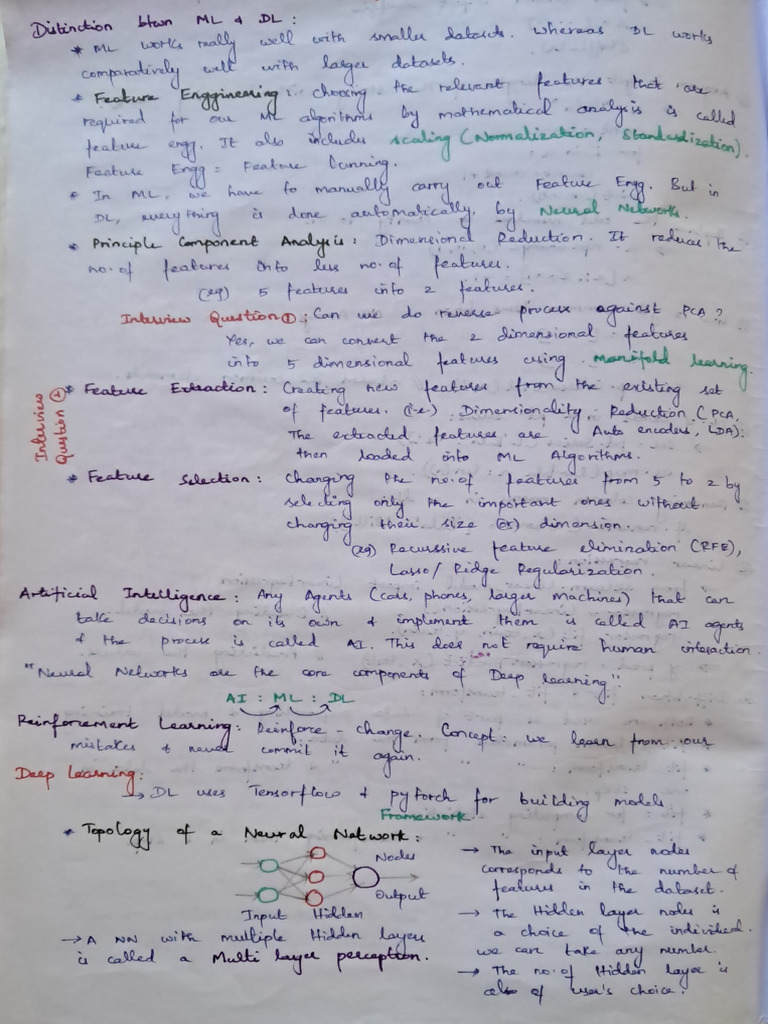 Distinction btwn ML & DL :
* ML works really well with smaller datasets. Whereas DL works
comparatively well with larger datasets.
* Feature Enggineering : choosing the relevant features that are
required for our ML algorithms by mathematical analysis is called
feature engg. It also includes scaling (Normalization, Standardization).
Feature Engg = Feature Tunning.
* In ML, we have to manually carry out Feature Engg. But in
DL, everything is done automatically by Neural Networks.
* Principle Component Analysis : Dimensional Reduction. It reduces the
no. of features into less no. of features.
(eg) 5 features into 2 features.
Interview Question ① : Can we do reverse process against PCA ?
Yes, we can convert the 2 dimensional features
into 5 dimensional features using manifold learning.
Interview
Question ②
* Feature Extraction : Creating new features from the existing set
of features. (i.e) Dimensionality Reduction (PCA,
Auto encoders, LDA).
The extracted features are
then loaded into ML Algorithms.
* Feature Selection : Changing the no. of features from 5 to 2 by
selecting only the important ones without
changing their size (or) dimension.
(eg) Recurssive feature elimination (RFE),
Lasso / Ridge Regularization.
Artificial Intelligence : Any Agents (cars, phones, larger machines) that can
take decisions on its own & implement them is called AI agents
& the process is called AI. This does not require human interaction.
"Neural Networks are the core components of Deep learning"
AI : ML : DL
Reinforcement Learning : Reinforce - change. Concept : we learn from our
mistakes & never commit it again.
Deep Learning :
→ DL uses Tensorflow & pyTorch for building models
Framework
* Topology of a Neural Network :
Nodes
Output
Input Hidden
→ A NN with multiple Hidden layers
is called a Multi layer perception.
→ The input layer nodes
corresponds to the number of
features in the dataset.
→ The Hidden layer nodes is
a choice of the individual.
we can take any number.
→ The no. of Hidden layer is
also of user's choice.